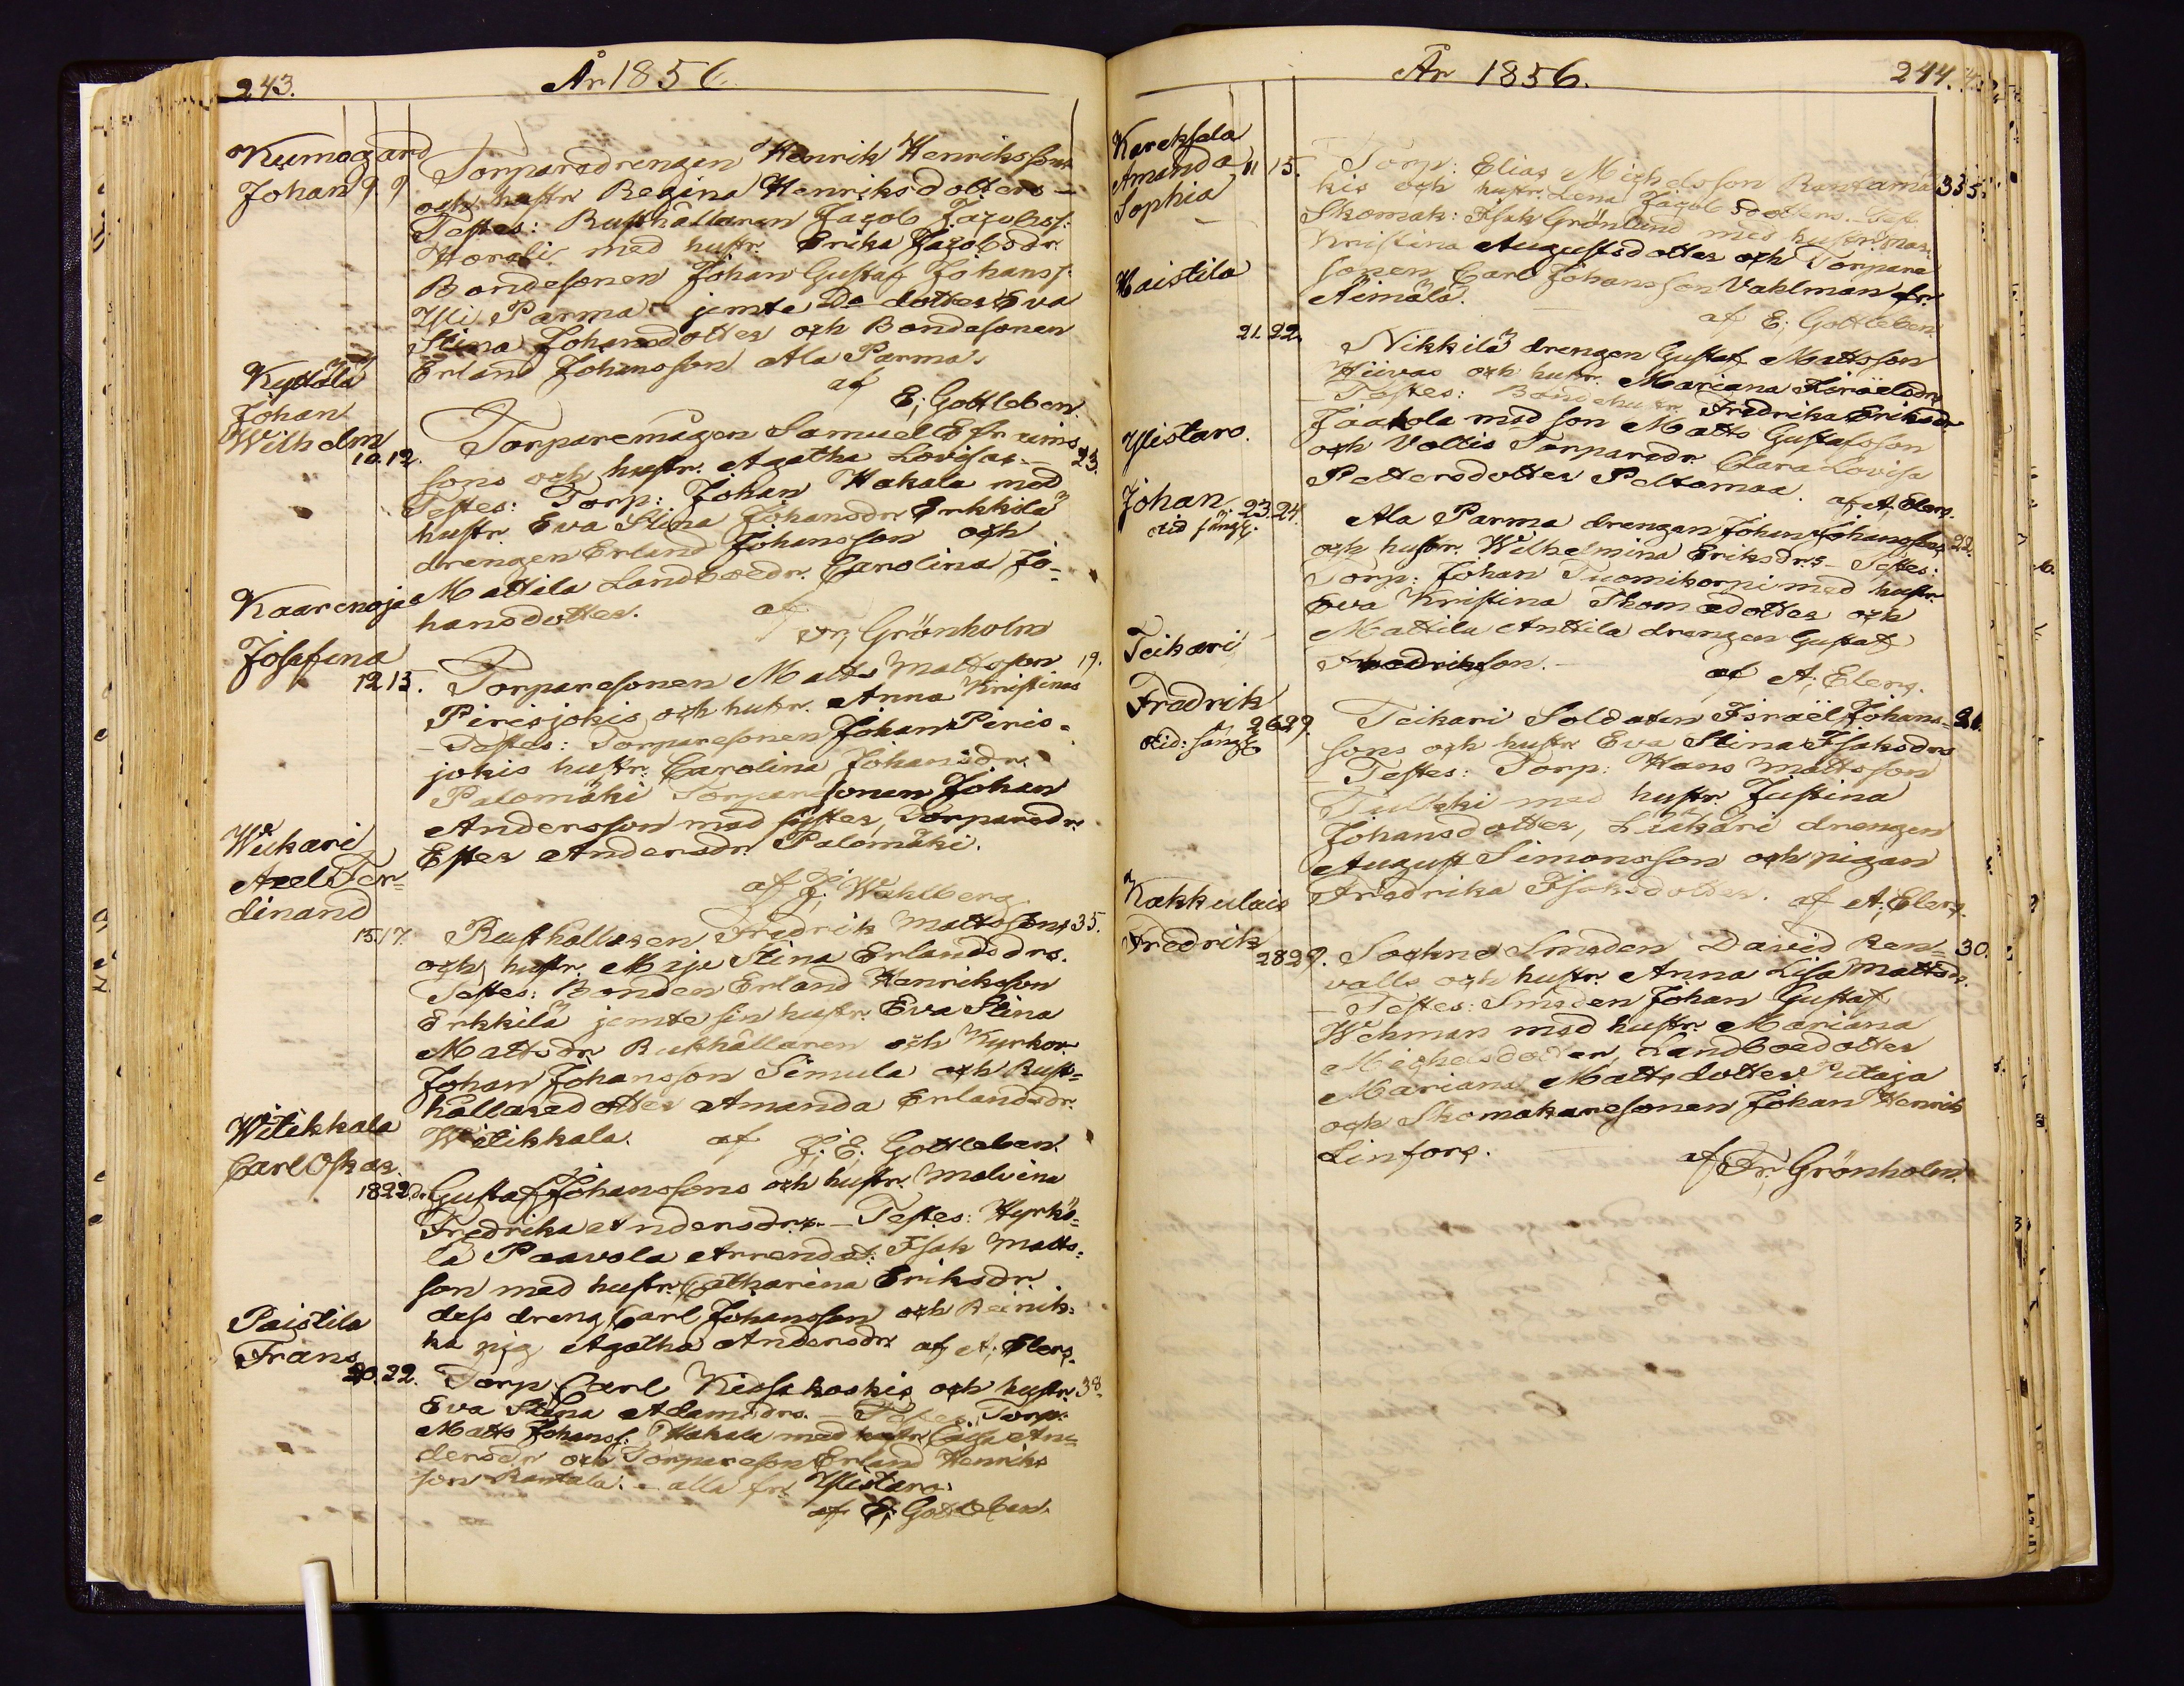 243.
År 1856
Kumogård
Johan 9 9
Torparedrengen Henrik Henrikssons
och hustr. Regina Henriksdotters —
Testes: Rusthållaren Jacob Jacobss:
Horeli med hustr. Erika Jacobsdr.
Bondesonen Johan Gustaf Johanss:
Yli Parma jemte Do dotter Eva
Stina Johansdotter och Bondesonen
Erland Johansson Ala Parma.
af E; Gottleben.
Kyttälä
Johan
Wilhelm
10. 12.
Torparemågen Samuel Efraims
sons och hustr. Agatha Lovisas — 23.
Testes: Torp: Johan Hakala med
hustr. Eva Stina Johansdr. Erkkilä
drengen Erland Johansson och
Mattila Landboedr. Carolina Jo-
hansdotter. af
Fr; Grönholm
Kaarenoja
Josefina
12 13.
Torparesonen Matts Mattsson 19.
Pirisjokis och hustr. Anna Kristinas
— Testes: Torparesonen Johan Piris-
jokis hustr: Carolina Johansdr.
Palomäki Torparesonen Johan
Andersson med syster, Torparedr.
Ester Andersdr. Palomäki.
af J; Wahlberg.
Wickari
Axel Fer-
dinand
15. 17.
Rusthållaren Fredrik Mattssons 35.
och hustr. Maja Stina Erlandsdrs.
Testes: Bonden Erland Henriksson
Erkkilä jemte sin hustr. Eva Stina
Mattsdr. Rusthållaren och Kyrkov.
Johan Johansson Simula och Rust-
hållaredotter Amanda Erlandsdr.
Witikkala. af J; E; Gottleben.
Witikkala
Carl Oskar.
18 22.
dr. Gustaf Johanssons och hustr. Malvina
Fredrika Andersdrs. — Testes: Hyrkö-
lä Paavola Arrendat: Isak Matts-
son med hustr. Catharina Eriksdr.
dess dreng Carl Johansson och Reinik-
ka pig Agatha Andersdr. af A; Elers.
Paistila
Frans
20. 22.
Torp. Carl Kissakoskis och hustr. 38.
Eva Stina Adamsdrs. — Testes. Torp:
Matts Johanss: Hakala med hustr. Caisa An-
dersdr. och Torpareson Erland Henriks
son Rantala. — alla fr. Ylistaro.
af E; Gottleben.
År 1856.
244.
Kareksela
Amanda
Sophia
11 15.
Torp: Elias Michelsson Rantamä 33 5.
kis och hustr. Lena Jacobsdotters. Test.
Skomak: Isak Grönlund med hustr. Mar.
Kristina Augustsdotter och Torpare
sonen Carl Johansson Vahlman fr.
Äimälä.
af E; Gottleben
Haistila
21. 22.
Nikkilä drengen Gustaf Mattsson
Hiivas och hustr. Mariana Israelsdrs
— Testes: Bondehustr. Fredrika Eriksdr.
Jaakola med son Matts Gustafsson
och Voltis Torparedr. Clara Lovisa
Pettersdotter Peltomaa. af A; Elers.
Ylistaro.
Johan 23. 24.
Ala Parma drengen Johan Johanssons 22.
och hustr. Wilhelmina Eriksdrs — Testes:
Torp: Johan Tuomikorpi med hustr.
Eva Kristina Thomasdotter och
Mattila Anttila drengen Gustaf
Fredriksson. —
af A; Elers.
Teikari
Fredrik
26 29.
Teikari Soldaten Israël Johans- 26.
sons och hustr Eva Stina Isaksdrs
— Testes: Torp: Hans Mattsson
Tulkki med hustr. Justina
Johansdotter, Liukari drengen
August Simonsson och pigan
Fredrika Isaksdotter. af A; Elers.
Kakkulais
Fredrik
28 29.
Sochne Smeden David Ren- 30.
valls och hustr. Anna Lisa Mattsdr.
— Testes: Smeden Johan Gustaf
Wehman med hustr. Mariana
Michelsdotter, Landboedotter
Mariana Mattsdotter Putaja
och Skomakaresonen Johan Henrik
Linfors.
af Fr: Grönholm.